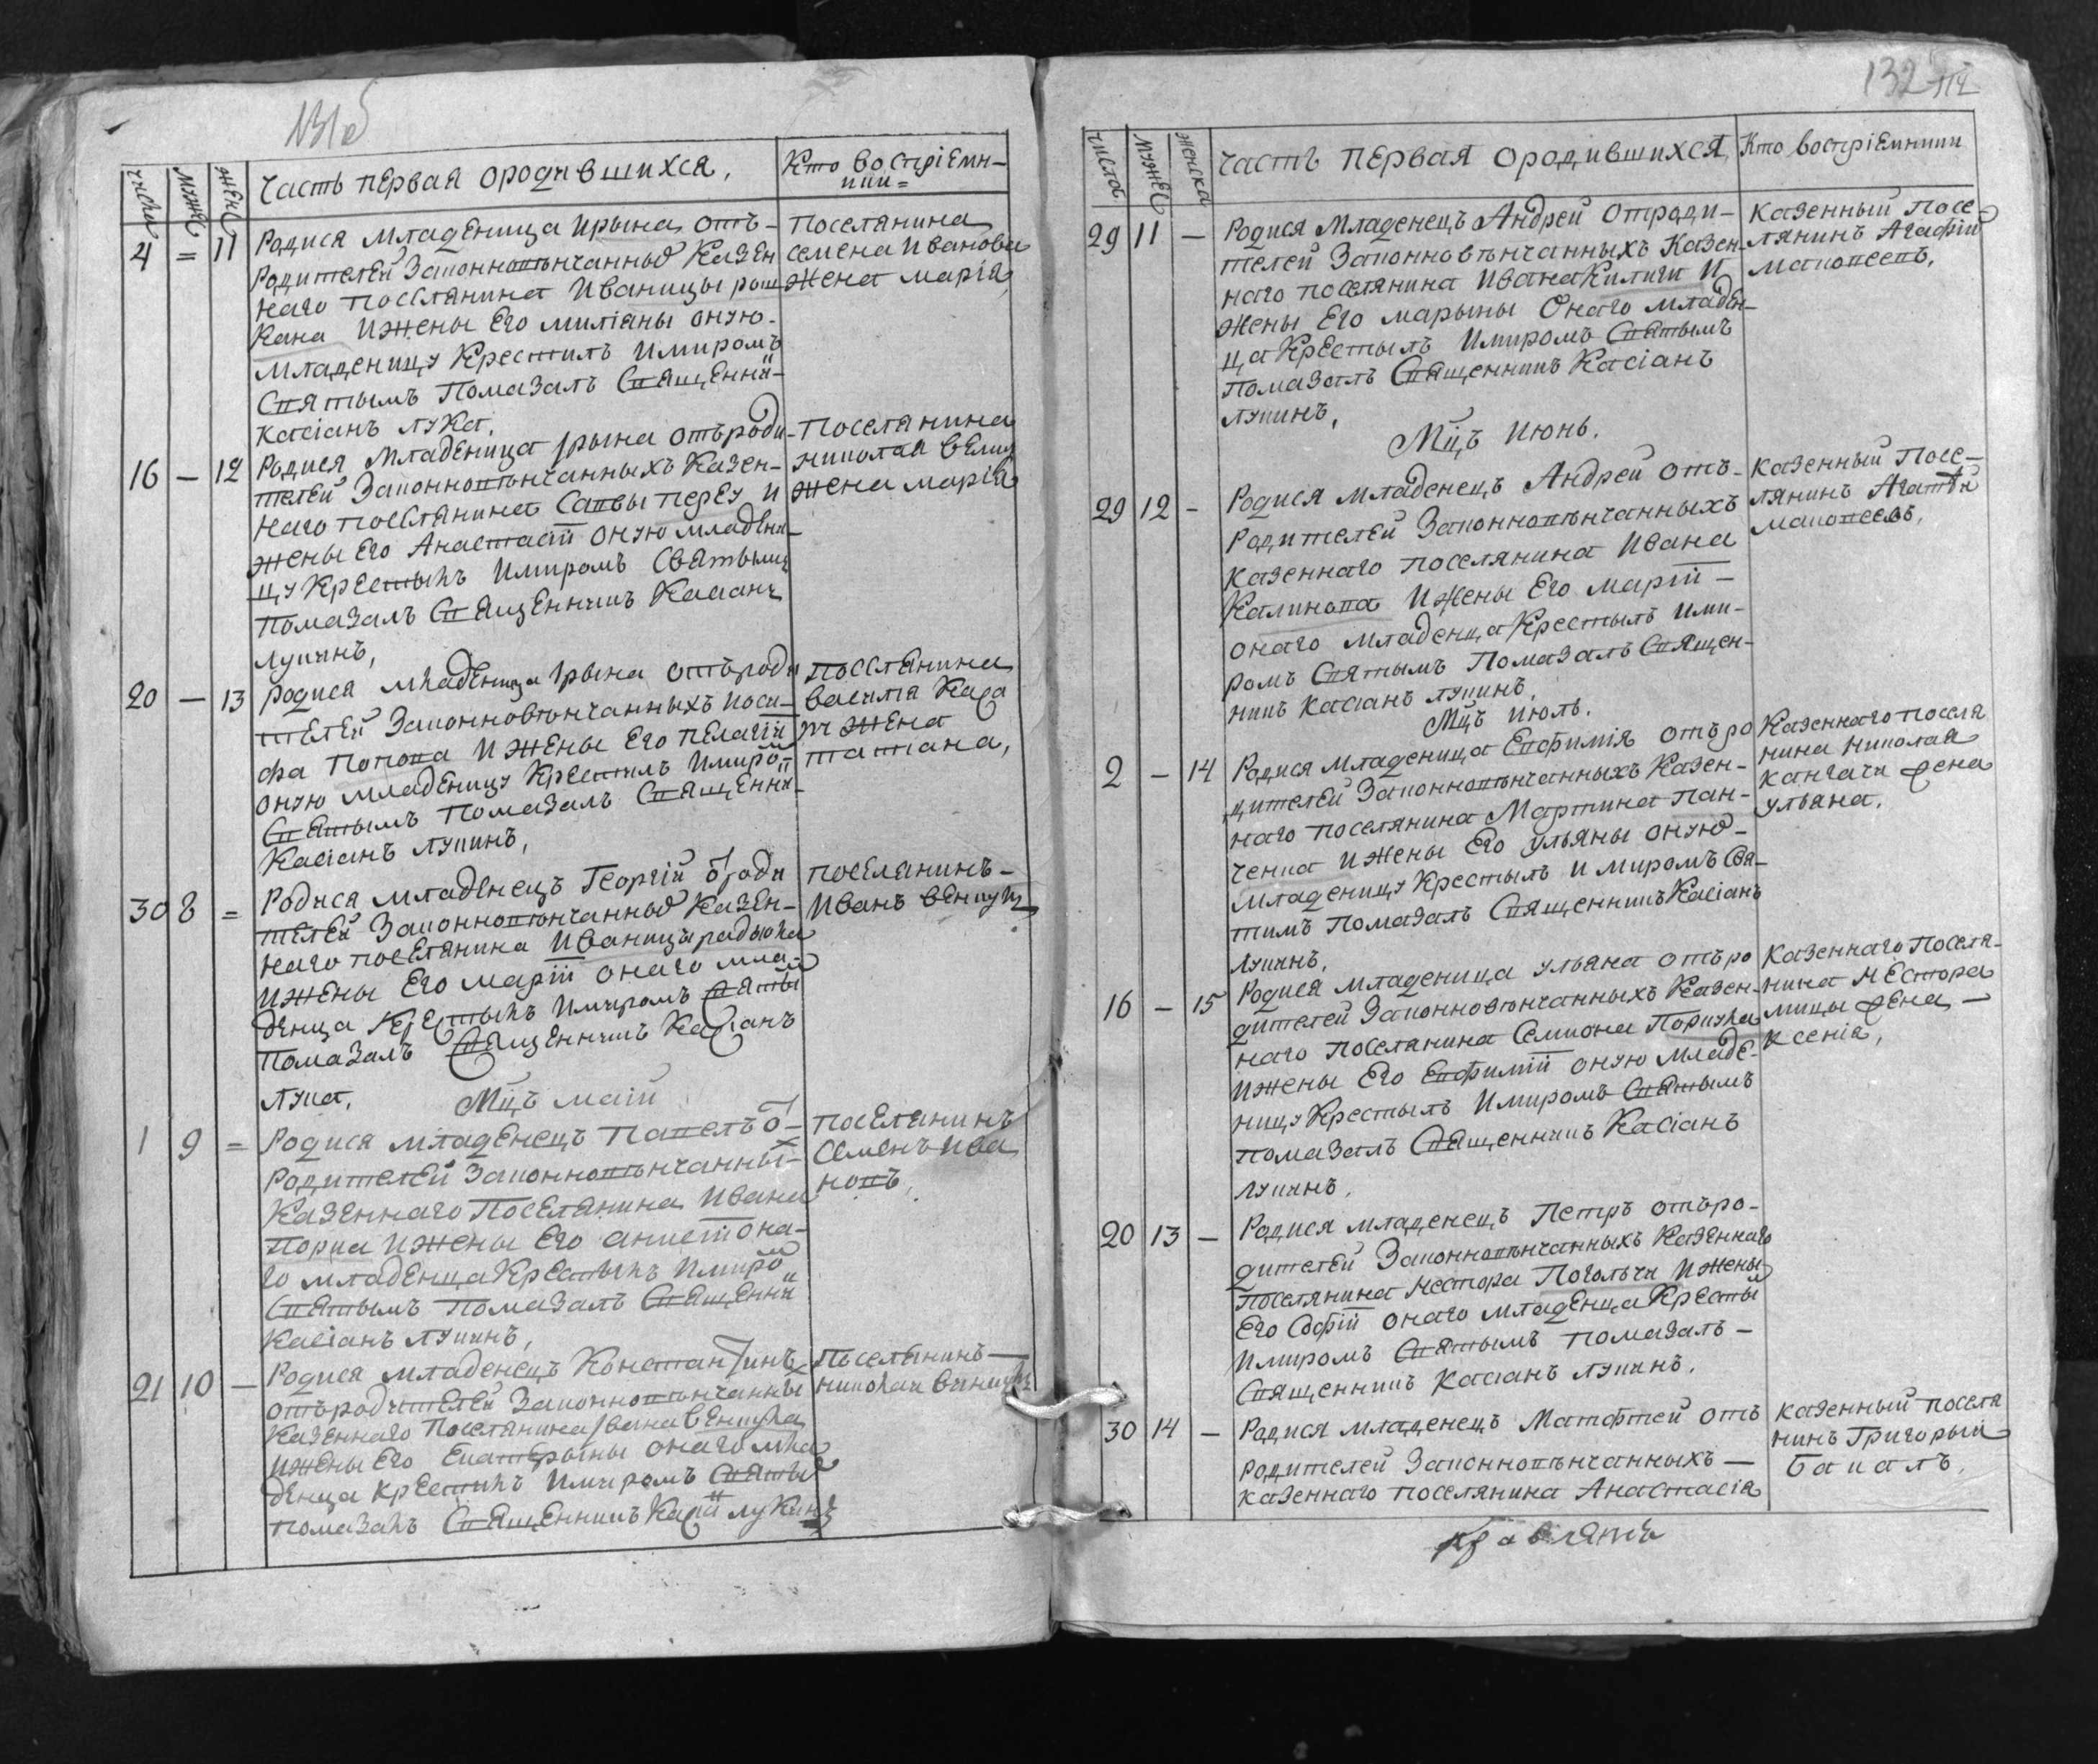 131об
числа
мужес
женс
часть первая ородившихся,
Кто воспріемн-
ики=
4 = 11
Родися младеница Ирына отъ-
родителей Законновѣнчанных Казен
наго поселянина Иваницы рош
кана Ижены Его миліяны оную-
младеницу Крестилъ Имиромъ
Святымъ Помазалъ Священни-
Касіанъ лука,
поселянина
семена Иванова
жена марія
16 - 12
Родися младеница Ірына отъроди-
телей Законновѣнчанныхъ Казен-
наго поселянина Саввы перех И
жены Его Анастасіи оную младени-
цу Крестылъ Имиромъ Святымъ
Помазалъ Священникъ Касіанъ
лукинъ,
поселянина
николая
жена марія
20 - 13
родися младеница Ірына отъроди
телей Законновѣнчанныхъ иоси-
фа Попова Ижены Его пелагіи
оную младеницу Крестилъ Имиром
Святымъ Помазалъ Священни-
Касіанъ лукинъ,
поселянина
василія Кара
жена
татіана,
30 8 =
Родися младенецъ Георгій ѿроди
телей Законновѣнчанных Казен-
наго поселянина Иваницы радюка
Ижены Его маріи онаго мла-
денца Крестылъ Имиромъ Святы
Помазалъ Священникъ Касіанъ
лука,
поселянинъ-
Иванъ
Мцъ маій
1 9 =
Родися младенецъ Павелъ ѿ-
Родителей Законновѣнчанных-
Казеннаго Поселянина Ивана
порка Ижены Его онa-
го младенца Крестылъ Имиро
Святымъ Помазалъ Священни
Касіанъ лукинъ,
поселянинъ
Семенъ Ива
новъ,
21 10 -
Родися младенецъ Константинъ
отъродителей Законновѣнчанны
Казеннаго Поселянина Івана венцука
Ижены Его Екатерыны онаго мла
денца крестилъ Имиромъ Святы
помазалъ Священникъ лукинъ
Поселянинъ-
николай
132 112
числа
мужес
женска
часть первая ородившихся
Кто воспріемники
29 11 -
Родися младенецъ Андрей отроди-
телей Законновѣнчанныхъ Казен-
наго поселянина Ивана Килиги И
жены Его марыны Онаго младен-
ца Крестылъ Имиромъ Святымъ
помазалъ Священникъ Касіанъ
лукинъ,
казенный посе-
лянинъ Агафій
маковеевъ,
Мцъ Июнь.
29 12 -
Родися младенецъ Андрей отъ-
родителей Законновѣнчанныхъ
казеннаго поселянина Ивана
Калинова Ижены Его маріи-
онаго младенца Крестылъ ими-
ромъ Святымъ Помазалъ Священ-
никъ касіанъ лукинъ,
казенный посе-
лянинъ Агатѣй
маковеевъ,
Мцъ июль.
2 - 14
Родися младеница Евфимія отъро
дителей Законновѣнчанныхъ Казен-
наго поселянина Мартина пан-
ченка ижены Его ульяны оную-
младеницу Крестылъ и миромъ Свя-
тимъ помазалъ Священникъ Касіанъ
лукинъ.
Казеннаго поселя
нина николая
кангачи жена
ульяна.
16 - 15
Родися младеница ульяна отъро
дителей Законновѣнчанныхъ Казен-
наго поселянина Семиона Порцука
Ижены Его Евфиміи оную младе-
ницу Крестылъ Имиромъ Святымъ
помазалъ Священникъ Касіанъ
лукинъ,
Казеннаго поселя-
нина нестора
мицы жена-
ксенія,
20 13 -
Родися младенецъ Петръ отъро-
дителей Законновѣнчанныхъ Казеннаго
поселянина нестора Погольчи Ижены
Его Софіи онаго младенца Кресты
Имиромъ Святымъ помазалъ-
Священникъ касіанъ лукинъ.
30 14 -
Родися младенецъ Матфтей отъ
родителей Законновѣнчанныхъ-
казеннаго поселянина Анастасія
казенный поселя
нинъ Григорый
Бакалъ,